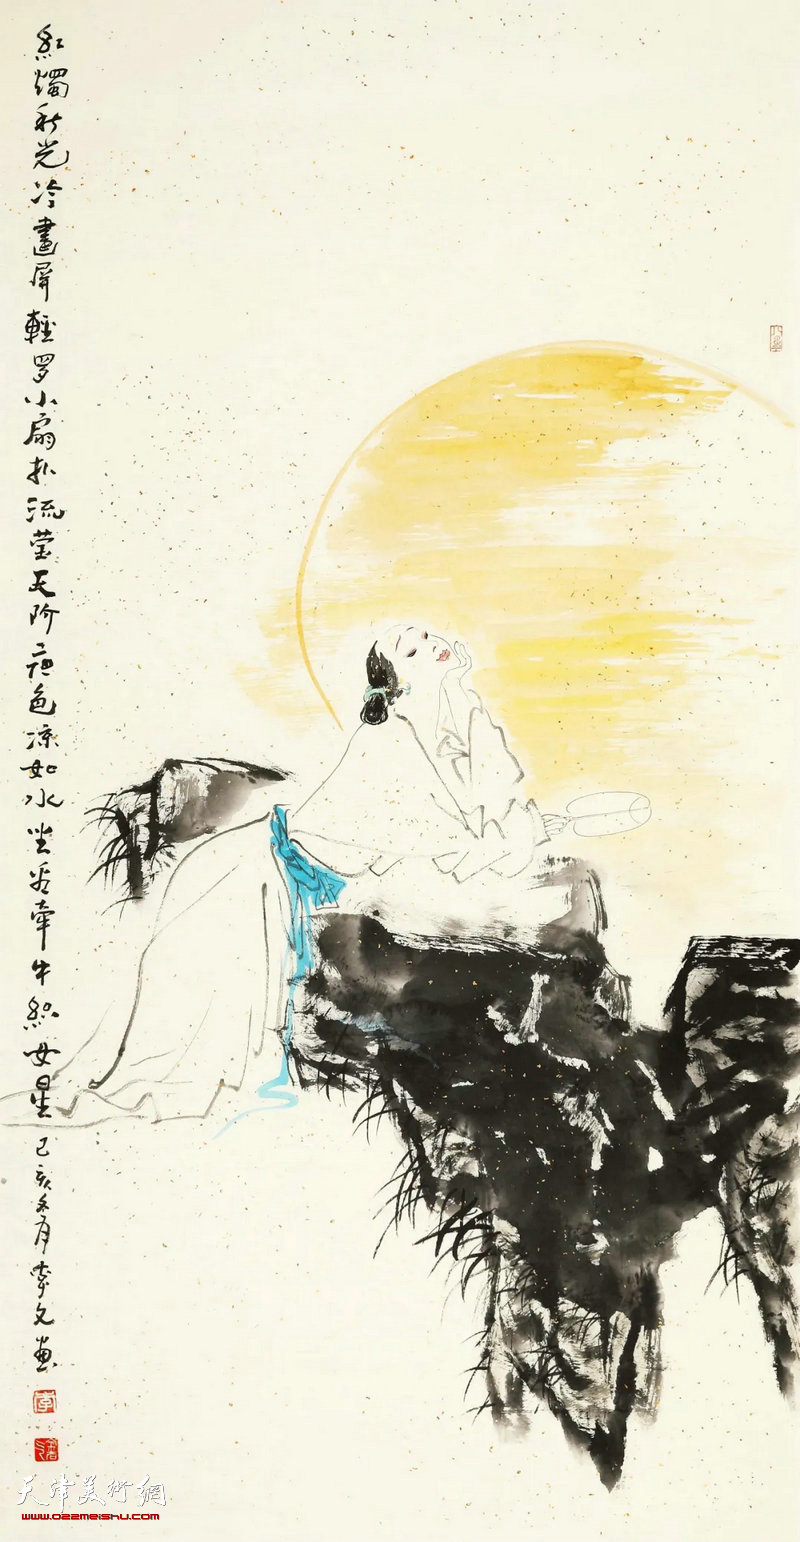 紅燭秋光冷畫屏輕罗小扇扑流莹天阶夜色凉如水坐看牽牛織女星己亥冬月李文画
天津美術網
www.022meishu.com